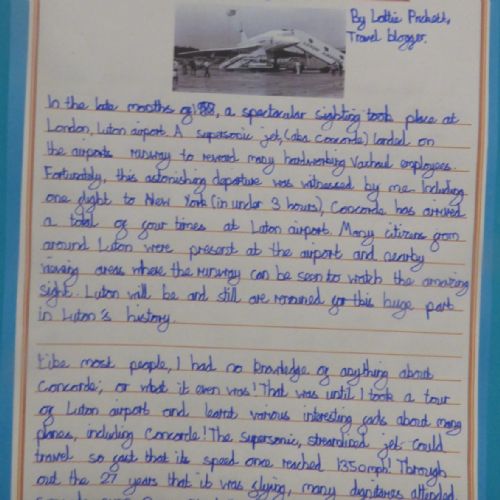 By Lottie Prckett,
Travel blogger.
In the late months of '88, a spectacular sighting took place at
London, Luton airport. A supersonic jet, (aka Concorde) landed on
the airports runway to reward many hardworking Vauxhall employees.
Fortunately, this astonishing departure was witnessed by me. Including
one flight to New York (in under 3 hours), Concorde has arrived
a total of four times at Luton airport. Many citizens from
around Luton were present at the airport and nearby
viewing areas where the runway can be seen to watch the amazing
sight. Luton will be and still are renowned for this huge part
in Luton's history.
Like most people, I had no knowledge of anything about
Concorde; or what it even was! That was until I took a tour
of Luton airport and learnt various interesting facts about many
planes, including Concorde! The supersonic, streamlined jet could
travel so fast that its speed once reached 1350mph! Through
out the 27 years that it was flying, many dignitaries attended